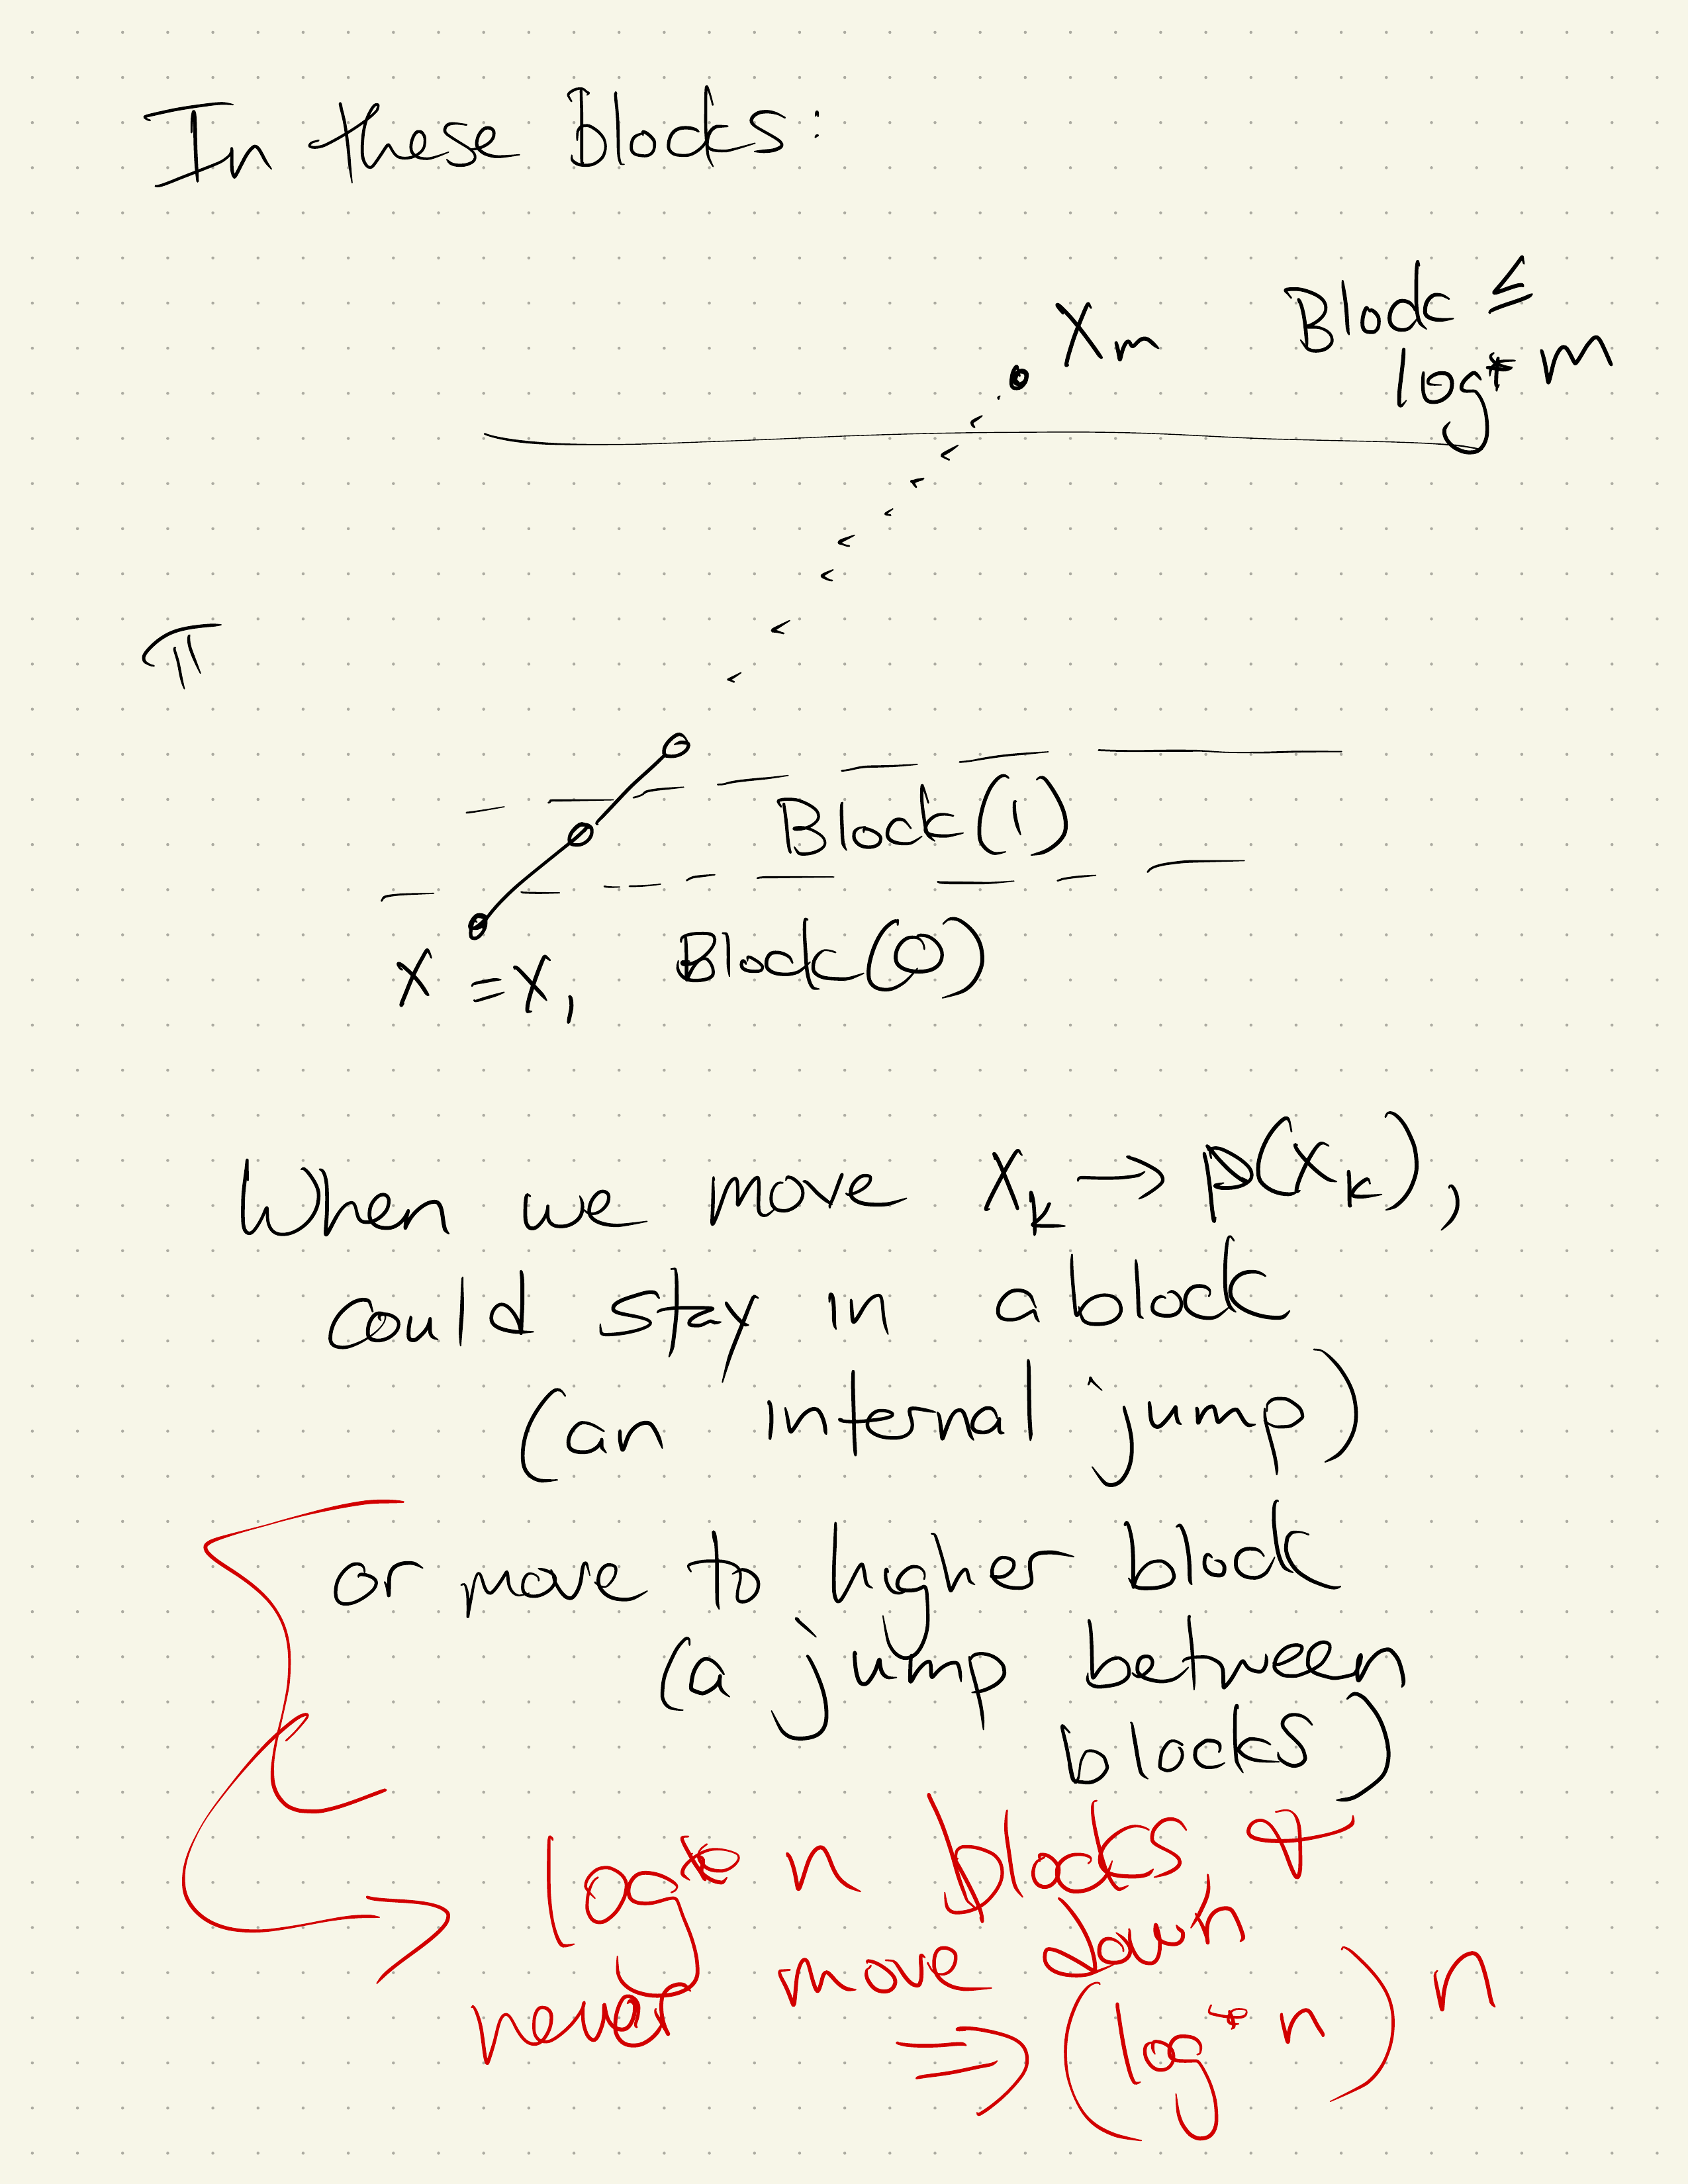 In these blocks:
X_m Block ≤
log* m
π
Block(1)
Block(0)
X = X_1
When we move X_k → p(X_k),
could stay in a block
(an internal jump)
or move to higher block
(a jump between
blocks)
log* n blocks &
never move down
⇒ (log* n) n